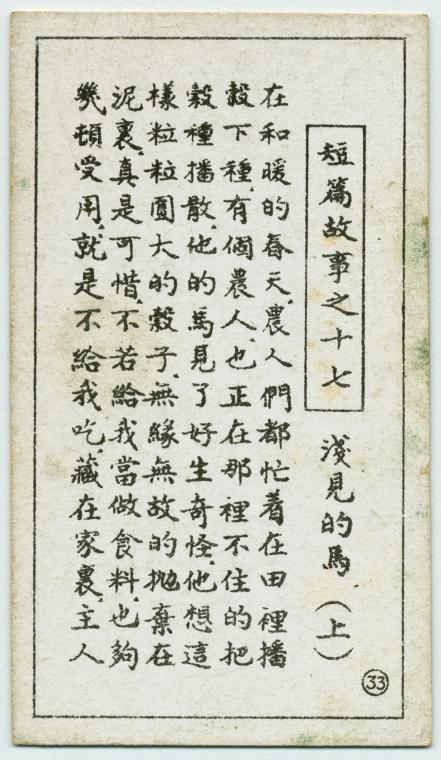 短篇故事之十七
淺見的馬（上）
在和暖的春天，農人們都忙着在田裡播
穀下種，有個農人，也正在那裡不住的把
穀種播散，他的馬見了好生奇怪，他想這
樣粒粒圓大的穀子，無緣無故的拋棄在
泥裏，真是可惜，不若給我當做食料，也夠
幾頓受用，就是不給我吃，藏在家裏，主人
33